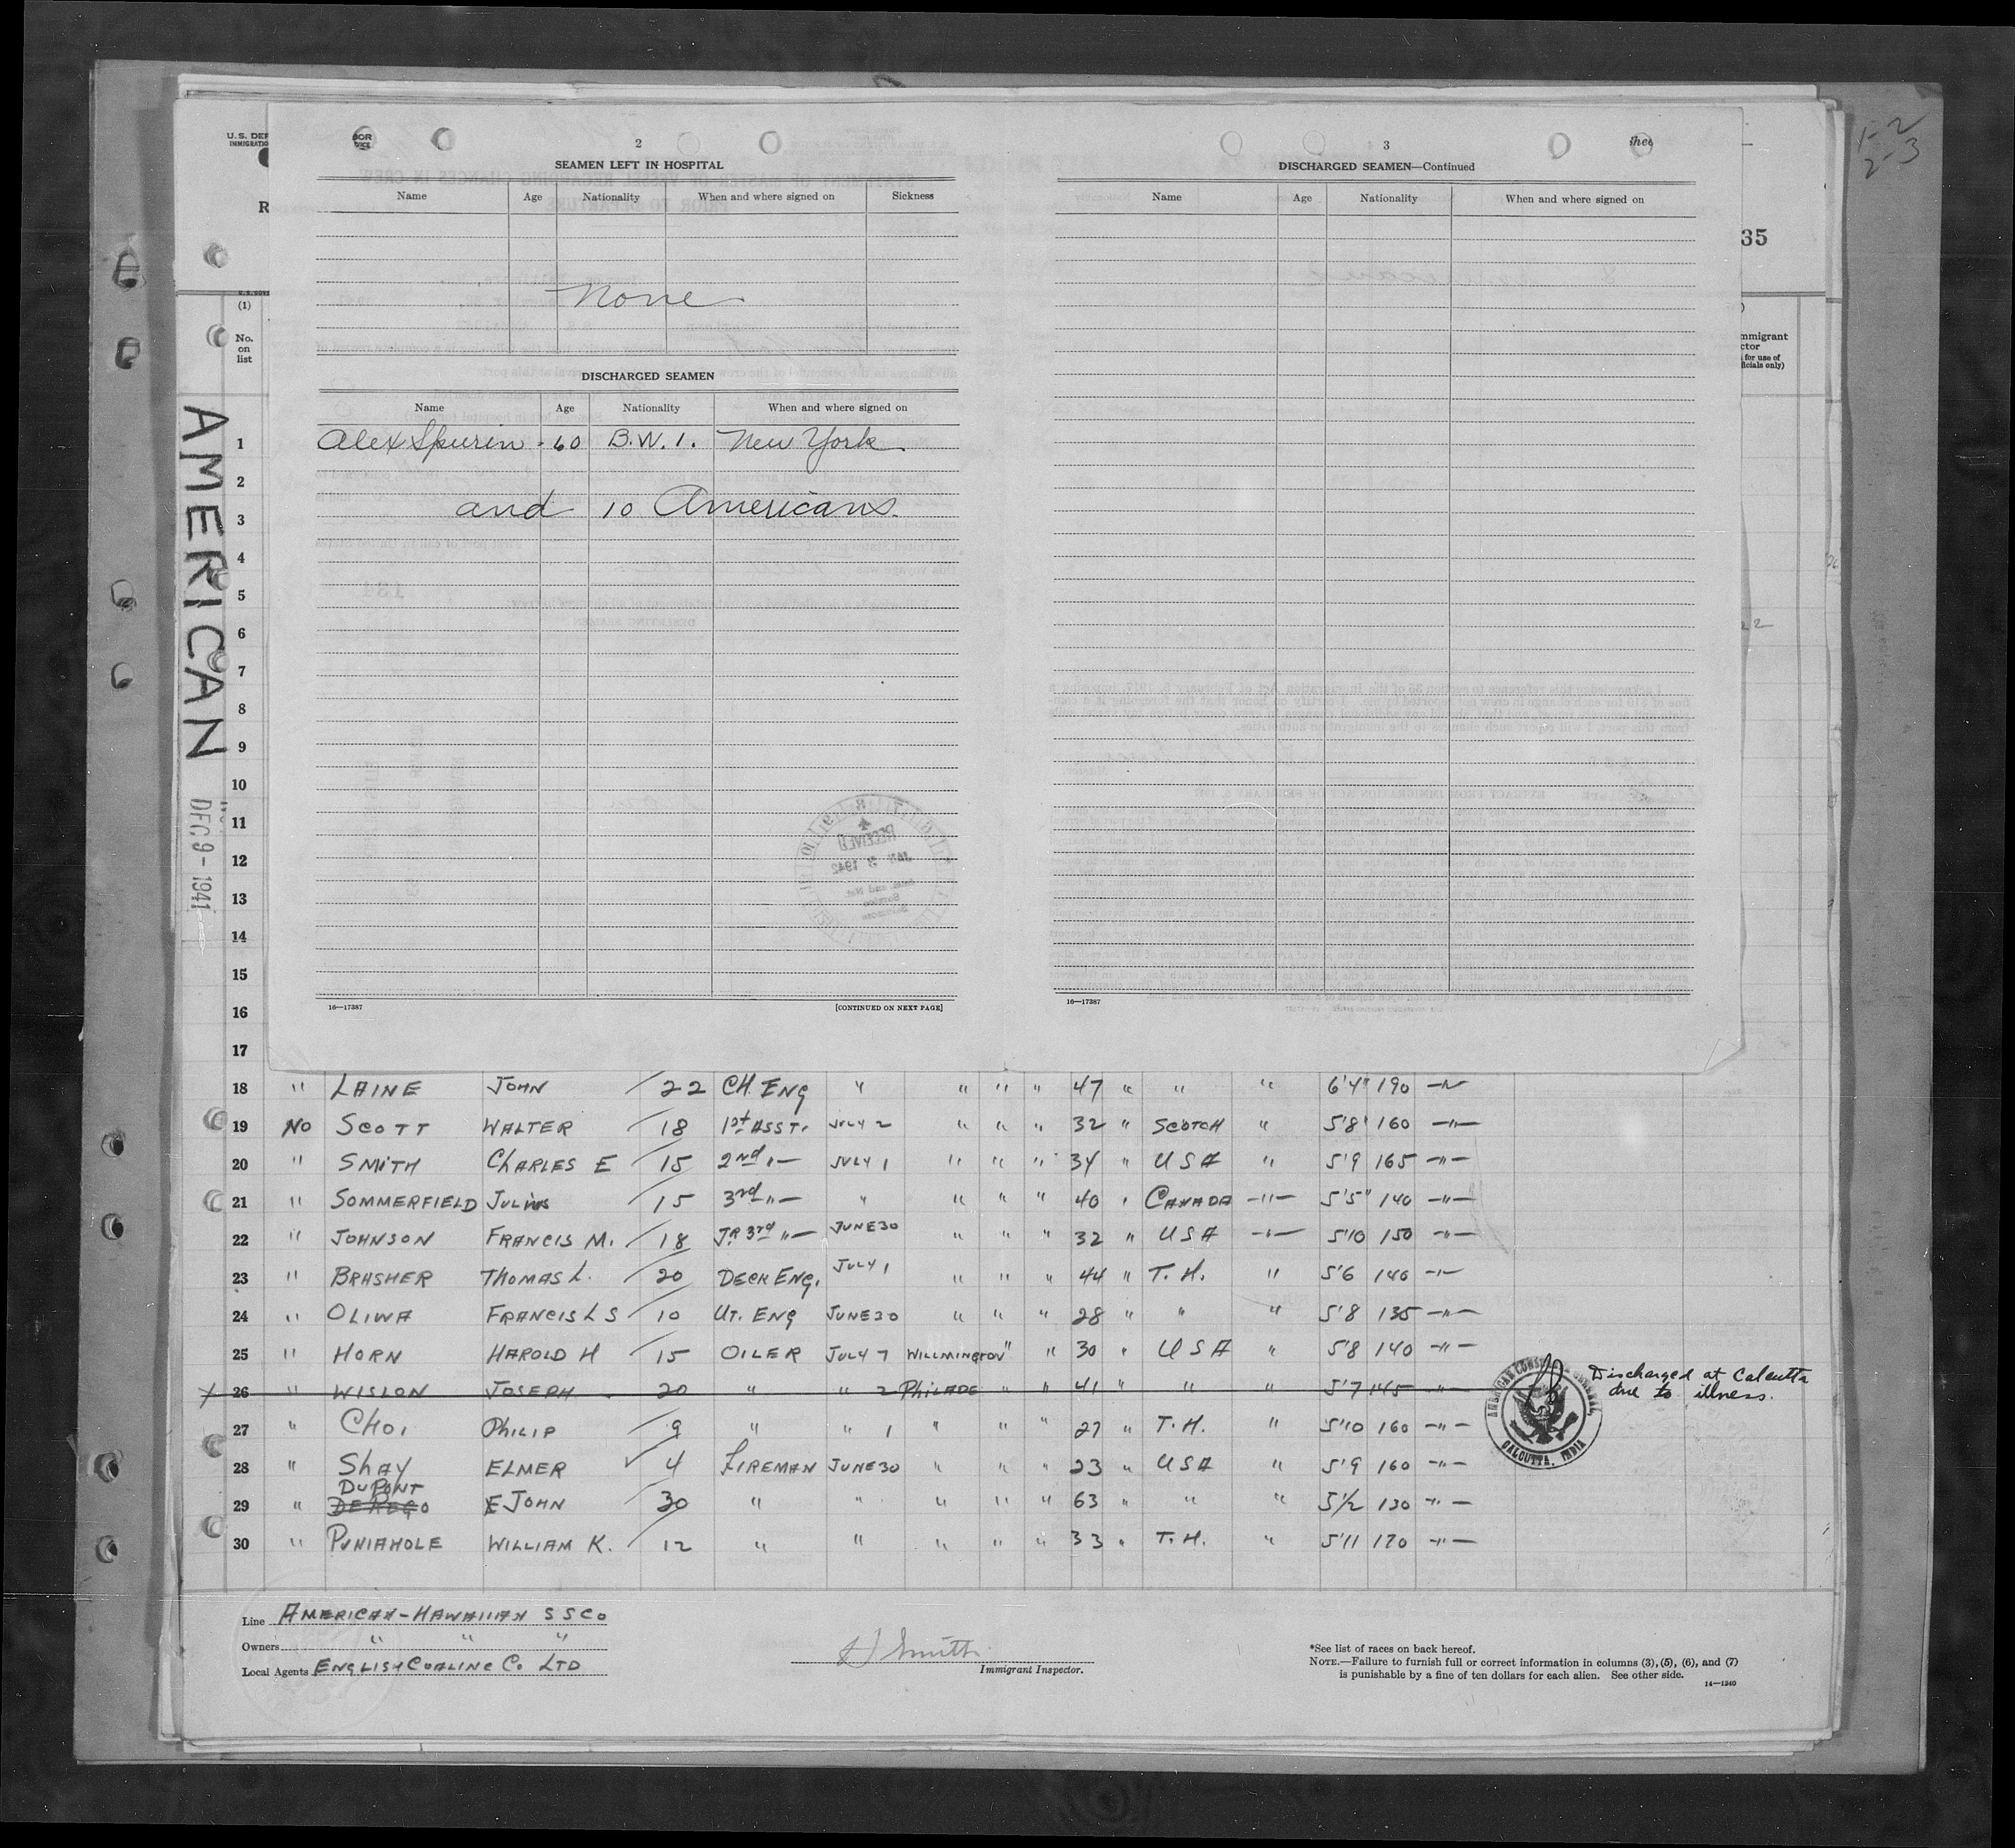 U.S. DEP
IMMIGRATIO
R
1-2
2-3
35
2
SEAMEN LEFT IN HOSPITAL
Name Age Nationality When and where signed on Sickness
None
DISCHARGED SEAMEN
Name Age Nationality When and where signed on
Alex Spurin - 60 B.W.I. New York
and 10 Americans.
16—17387 [CONTINUED ON NEXT PAGE]
3
DISCHARGED SEAMEN—Continued
Name Age Nationality When and where signed on
16—17387
(1)
No.
on
list
mmigrant
ctor
for use of
ficials only)
AMERICAN
DEC 9 - 1941
RECEIVED
JAN 3 1942
1
2
3
4
5
6
7
8
9
10
11
12
13
14
15
16
17
18 " LAINE JOHN 22 CH. ENG " " " " 47 " " " 6'4" 190 —"—
19 NO SCOTT WALTER 18 1st ASST. JULY 2 " " " 32 " SCOTCH " 5'8" 160 —"—
20 " SMITH CHARLES E 15 2nd "— JULY 1 " " " 34 " USA " 5'9 165 —"—
21 " SOMMERFIELD JULIUS 15 3rd "— " " " " 40 " CANADA —"— 5'5" 140 —"—
22 " JOHNSON FRANCIS M. 18 JR 3rd "— JUNE 30 " " " 32 " USA —"— 5'10 150 —"—
23 " BRASHER THOMAS L. 20 DECK ENG. JULY 1 " " " 44 " T.H. " 5'6 140 —"—
24 " OLIWA FRANCIS L S 10 UT. ENG JUNE 30 " " " 28 " " " 5'8 135 —"—
25 " HORN HAROLD H 15 OILER JULY 7 WILLMINGTOV " " 30 " USA " 5'8 140 —"—
26 " WISLON JOSEPH 20 " " 2 PHILADE " " 41 " " " 5'7 145 —"—
Discharged at Calcutta
due to illness.
AMERICAN CONSULATE GENERAL,
CALCUTTA, INDIA
27 " CHOI PHILIP 9 " " 1 " " " 27 " T.H. " 5'10 160 —"—
28 " SHAY ELMER 4 FIREMAN JUNE 30 " " " 23 " USA " 5'9 160 —"—
DUPONT
29 " E JOHN 30 " " " " " 63 " " " 5'1/2 130 —"—
30 " PUNIAHOLE WILLIAM K. 12 " " " " " 33 " T.H. " 5'11 170 —"—
Line AMERICAN-HAWAIIAN S S Co
Owners " " "
Local Agents ENGLISH COALING Co LTD
H Smith
Immigrant Inspector.
*See list of races on back hereof.
NOTE.—Failure to furnish full or correct information in columns (3), (5), (6), and (7)
is punishable by a fine of ten dollars for each alien. See other side.
14—1240